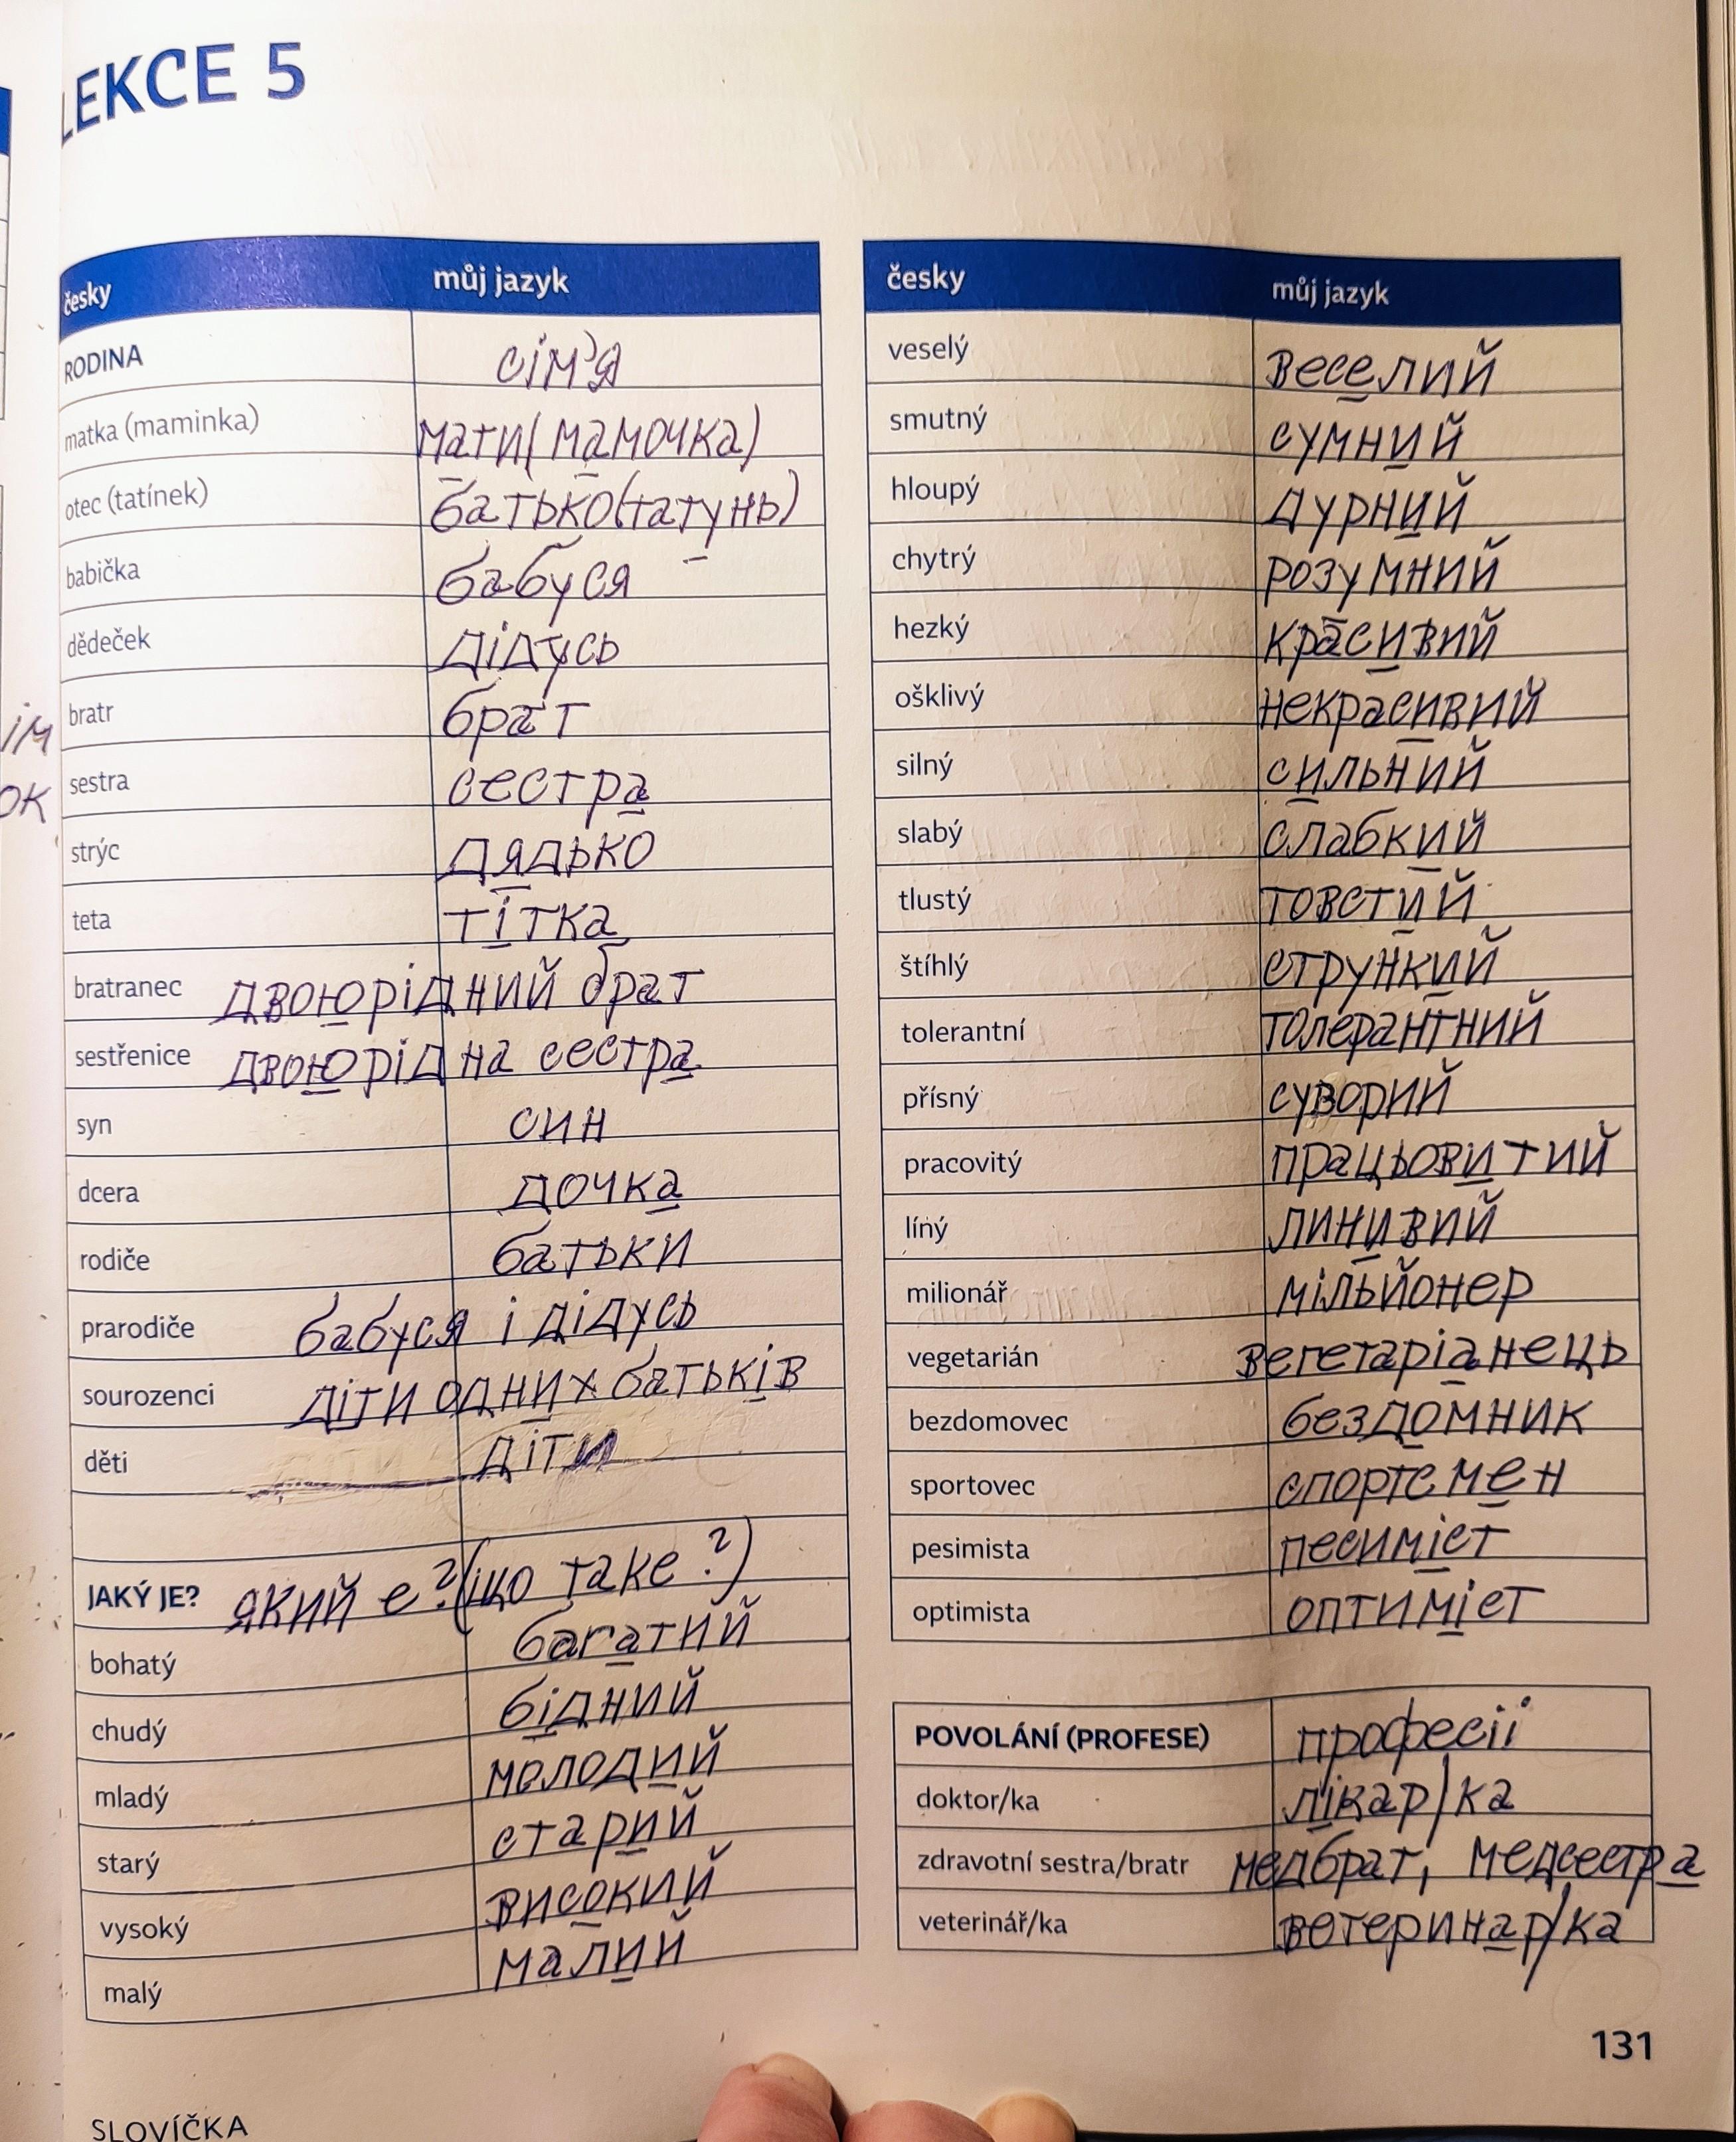 LEKCE 5
česky můj jazyk
RODINA сім'я
matka (maminka) мати(мамочка)
otec (tatínek) батько(татунь)
babička бабуся
dědeček дідусь
bratr брат
sestra сестра
strýc дядько
teta тітка
bratranec двоюрідний брат
sestřenice двоюрідна сестра
syn син
dcera дочка
rodiče батьки
prarodiče бабуся і дідусь
sourozenci діти одних батьків
děti діти
JAKÝ JE? який е?(що таке?)
bohatý багатий
chudý бідний
mladý молодий
starý старий
vysoký високий
malý малий
česky můj jazyk
veselý веселий
smutný сумний
hloupý дурний
chytrý розумний
hezký красивий
ošklivý некрасивий
silný сильний
slabý слабкий
tlustý товстий
štíhlý стрункий
tolerantní толерантний
přísný суворий
pracovitý працьовитий
líný линивий
milionář мільйонер
vegetarián вегетаріанець
bezdomovec бездомник
sportovec спортсмен
pesimista песиміст
optimista оптиміст
POVOLÁNÍ (PROFESE) професії
doktor/ka лікар/ка
zdravotní sestra/bratr медбрат, медсестра
veterinář/ka ветеринар/ка
131
SLOVÍČKA
ім
ок